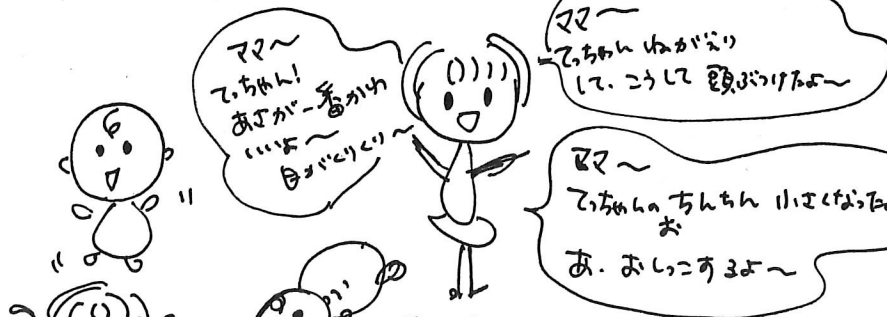 ママ～
てっちゃん!
あさが一番かわ
いいよ～
目がくりくり～
ママ～
てっちゃん ねがえり
して、こうして 頭ぶつけたよ～
ママ～
てっちゃんの ちんちん 小さくなった
お
あ、おしっこするよ～